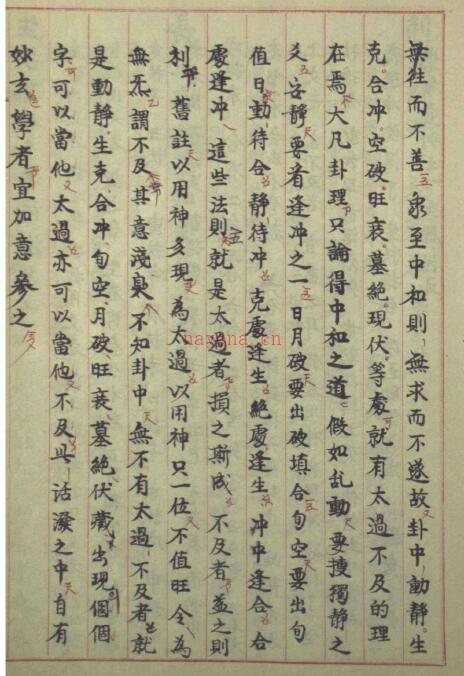 無往而不善衆至中和則無求而不遂故卦中動静生
克合冲空破旺衰墓絶現伏等處就有太過不及的理
在焉大凡卦理只論得中和之道假如乱動要搜獨静之
爻安静要看逢冲之一日月破要出破填合旬空要出旬
值日動待合静待冲克處逢生絶處逢生冲中逢合合
處逢冲這些法則就是太過者損之斯成不及者益之則
利舊註以用神多現為太過以用神只一位不值旺令為
無炁謂不及其意淺臭不知卦中無不有太過不及者就
是動静生克合冲旬空月破旺衰墓絶伏藏出現個個
字可以當他太過亦可以當他不及此活潑之中自有
妙玄學者宜加意參之
nayona.cn